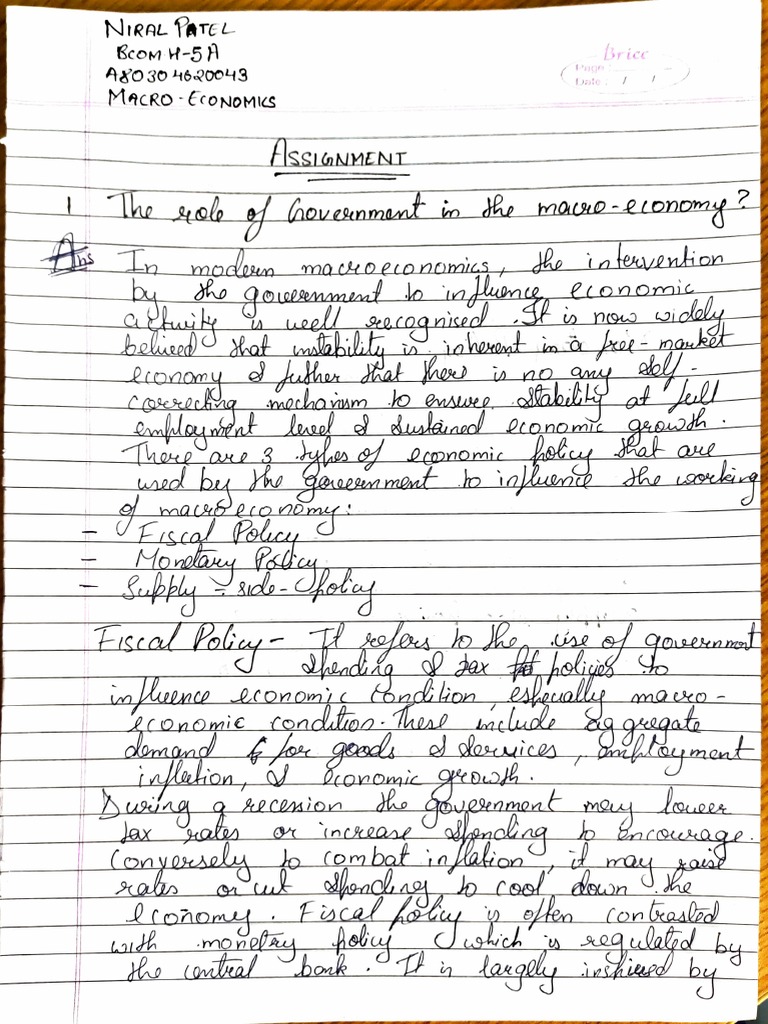 NIRAL PATEL
BCOM H-5A
A80304620043
MACRO-ECONOMICS
Brice
Page :
Date : / /
ASSIGNMENT
1 The role of Government in the macro-economy?
Ans In modern macroeconomics, the intervention
by the government to influence economic
activity is well recognised. It is now widely
belived that instability is inherent in a free-market
economy & futher that there is no any self-
correcting mechanism to ensure stability at full
employment level & sustained economic growth.
There are 3 types of economic policy that are
used by the government to influence the working
of macroeconomy:
- Fiscal Policy
- Monetary Policy
- Supply-side-policy
Fiscal Policy - It refers to the use of government
spending & tax policies to
influence economic condition, especially macro-
economic condition. These include aggregate
demand for goods & services, employment
inflation, & economic growth.
During a recession the government may lower
tax rates or increase spending to encourage.
Conversely to combat inflation, it may raise
rates or cut spending to cool down the
economy. Fiscal policy is often contrasted
with monetry policy which is regulated by
the central bank. It is largely inshired by